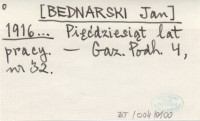 [BEDNARSKI Jan]
1916... Pięćdziesiąt lat
pracy. — Gaz. Podh. 4,
nr 32.